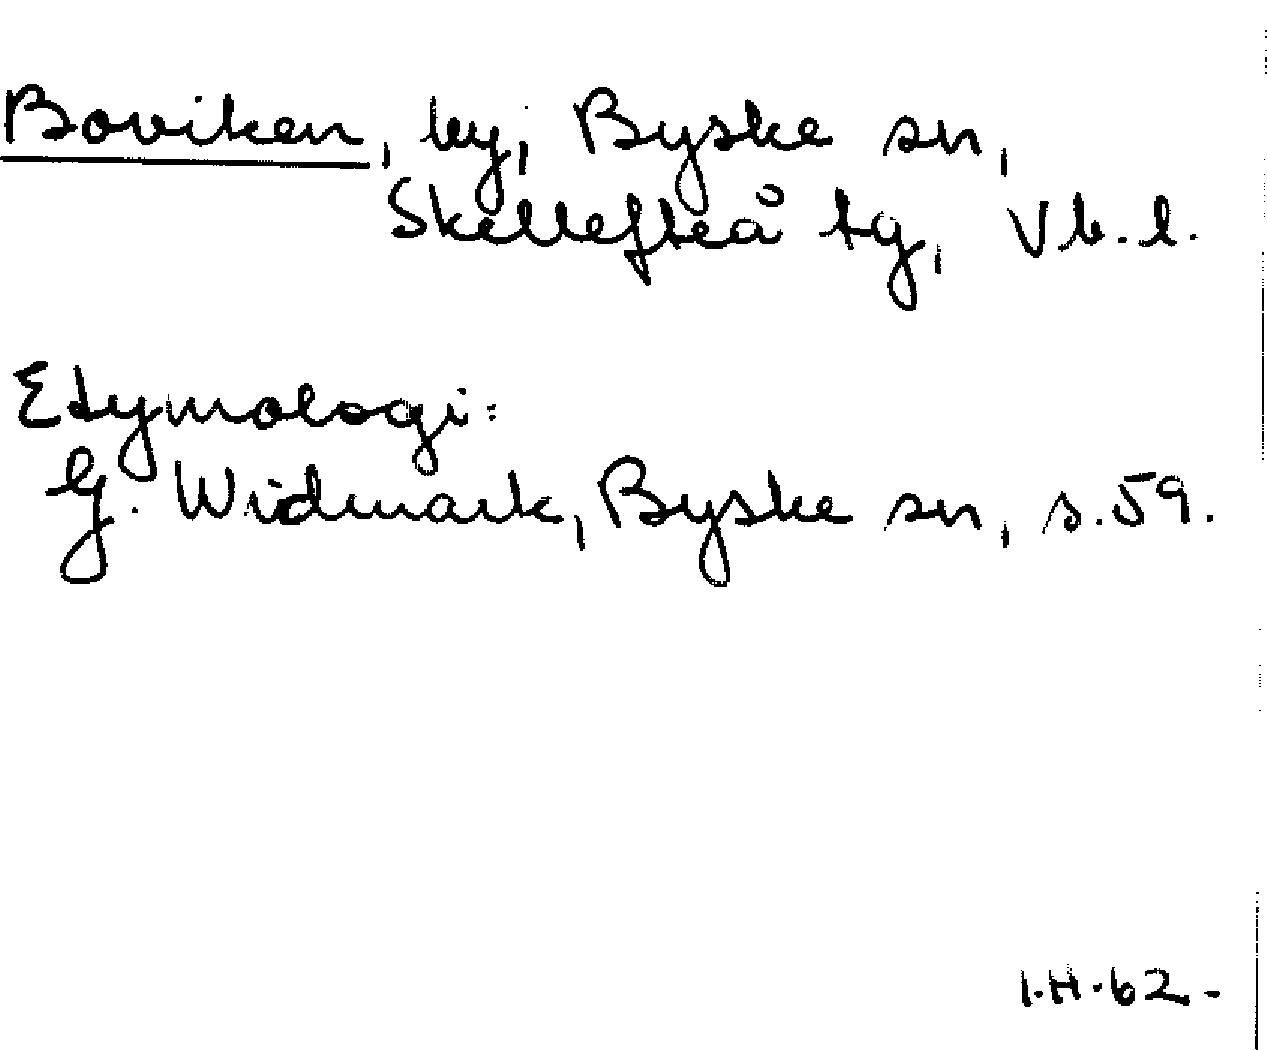 Boviken, by, Byske sn,
Skellefteå tg, Vb.l.
Etymologi:
G. Widmark, Byske sn, s.59.
I.H.62-